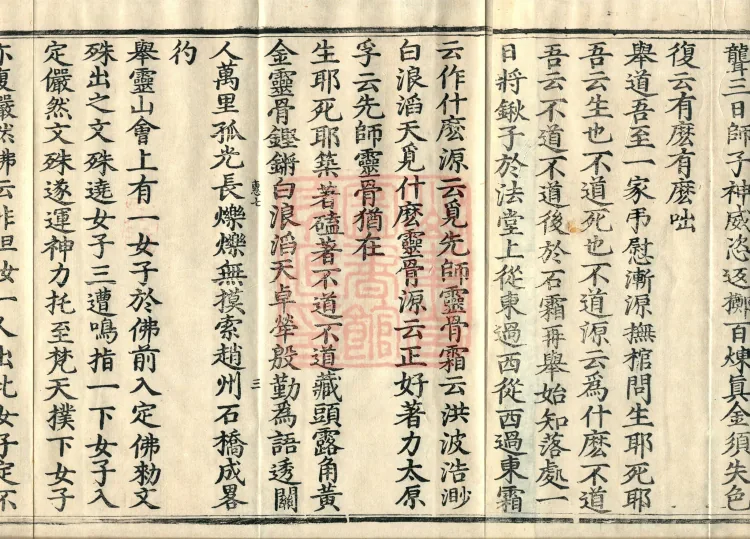 聾三日師子神威恣返擲百煉真金須失色
復云有麼有麼咄
舉道吾至一家弔慰漸源撫棺問生耶死耶
吾云生也不道死也不道源云為什麼不道
吾云不道不道後於石霜再舉始知落處一
日將鍬子於法堂上從東過西從西過東霜
云作什麼源云覓先師靈骨霜云洪波浩渺
白浪滔天覓什麼靈骨源云正好著力太原
孚云先師靈骨猶在
生耶死耶築著磕著不道不道藏頭露角黃
金靈骨鏗鏘白浪滔天卓犖殷勤為語透關
三
人萬里孤光長爍爍無摸索趙州石橋成畧
彴
舉靈山會上有一女子於佛前入定佛勑文
殊出之文殊遶女子三遭鳴指一下女子入
定儼然文殊遂運神力托至梵天撲下女子
亦復儼然佛云非但汝一人出此女子定不